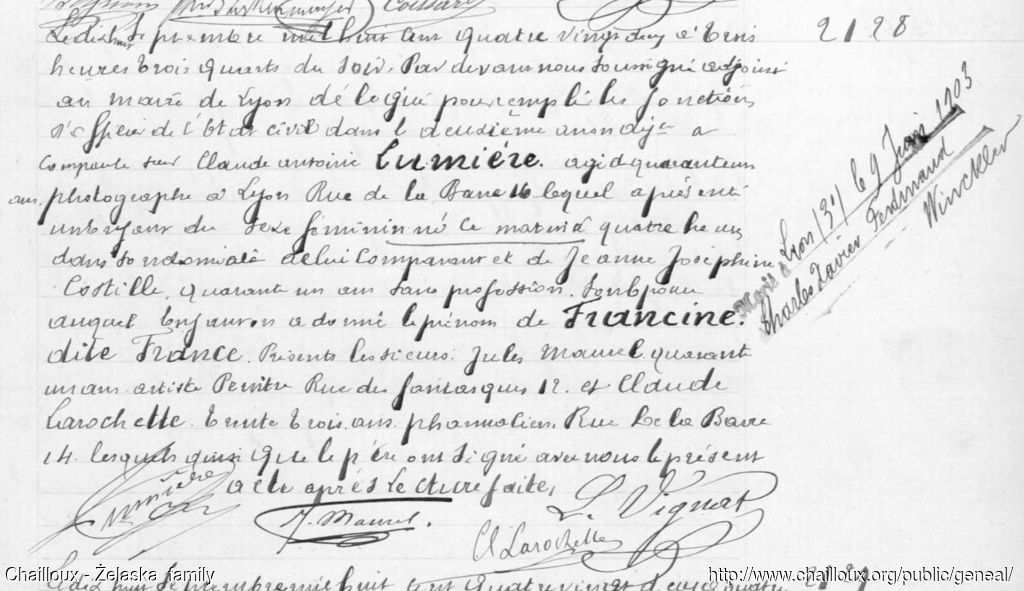 Le dix huit Septembre mil huit cent quatre vingt deux à trois 2128
heures trois quarts du soir. Par devant nous soussigné adjoint
au maire de Lyon délégué pour remplir les fonctions
d'officier de l'état civil dans l deuxième arrondt a
comparu sieur Claude antoine Lumière. agé de quarante un
ans. photographe à Lyon Rue de la Barre 16 lequel a présenté
un enfant du sexe féminin né ce matin à quatre heures
dans son domicile de lui comparant et de Jeanne Joséphine
Costille, quarante un ans sans profession. son épouse
auquel enfant on a donné le prénom de Francine.
dite France. Présents les sieurs. Jules Maurel quarante
un ans artiste Peintre Rue des fantasques 12. et Claude
Larochette. trente trois ans pharmacien. Rue De la Barre
14. lesquels ainsi que le père ont signé avec nous le présent
acte après lecture faite,
Lumière
J. Maurel.
Cl Larochette
L. Vignat
Marié Lyon (3e) le 9 Juin 1903
Charles Xavier Ferdinand
Winckler
Le dix huit Septembre mil huit cent quatre vingt deux à quatre
Chailloux - Żelaska family
http://www.chailloux.org/public/geneal/